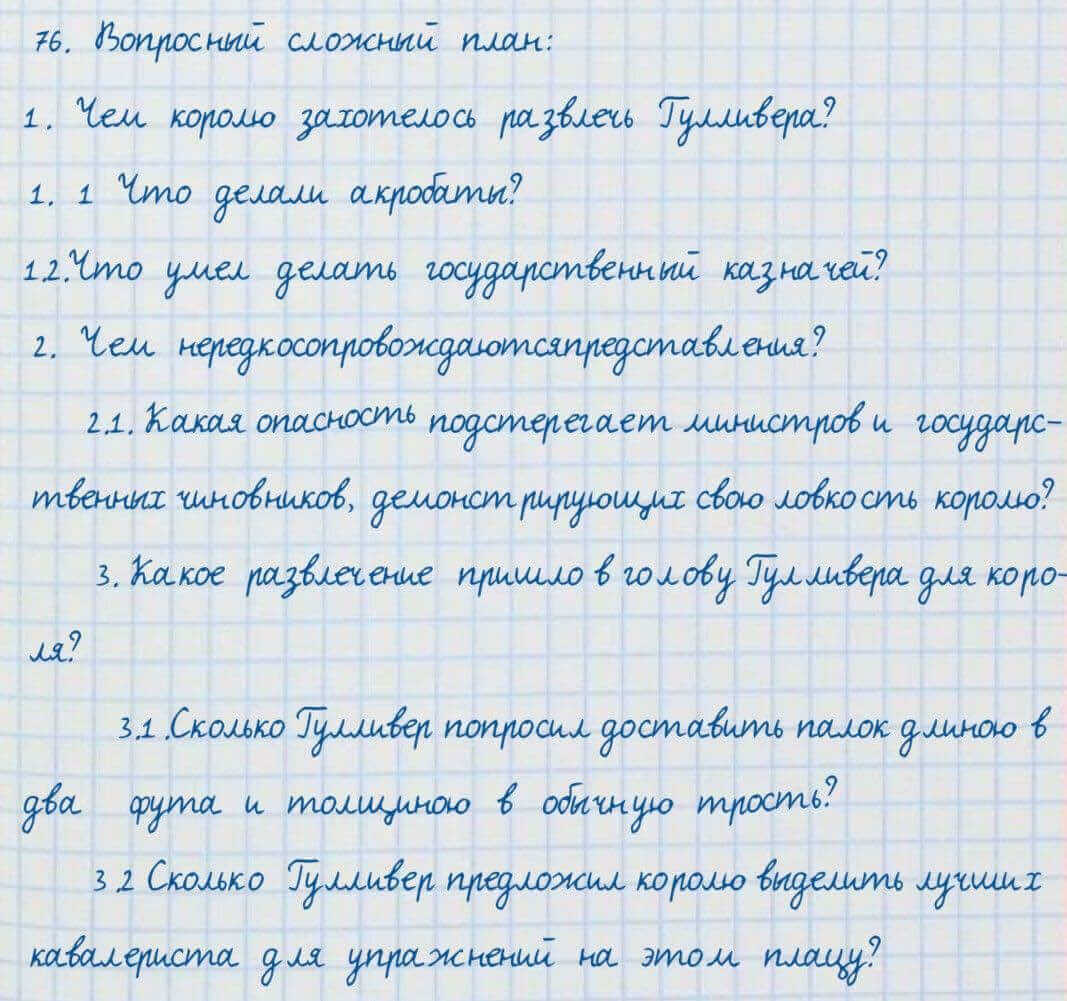 76. Вопросный сложный план:
1. Чем королю захотелось развлечь Гулливера?
1. 1 Что делали акробаты?
1.2. Что умел делать государственный казначей?
2. Чем нередкосопровождаютсяпредставления?
2.1. Какая опасность подстерегает министров и государс-
твенных чиновников, демонстрирующих свою ловкость королю?
3. Какое развлечение пришло в голову Гулливера для коро-
ля?
3.1. Сколько Гулливер попросил доставить палок длиною в
два фута и толщиною в обычную трость?
3.2 Сколько Гулливер предложил королю выделить лучших
кавалериста для упражнений на этом плацу?